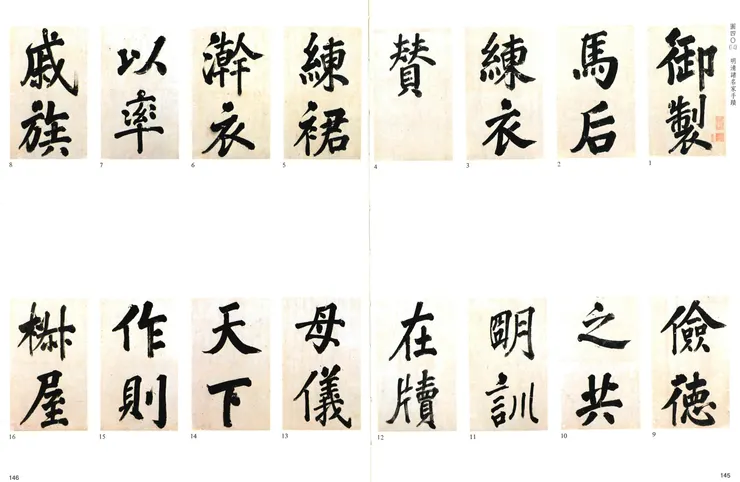 圖四〇
明清諸名家手蹟
御製
1
馬后
2
練衣
3
賛
4
練裙
5
澣衣
6
以率
7
戚族
8
儉徳
9
之共
10
朙訓
11
在牘
12
母儀
13
天下
14
作則
15
椒屋
16
145
146